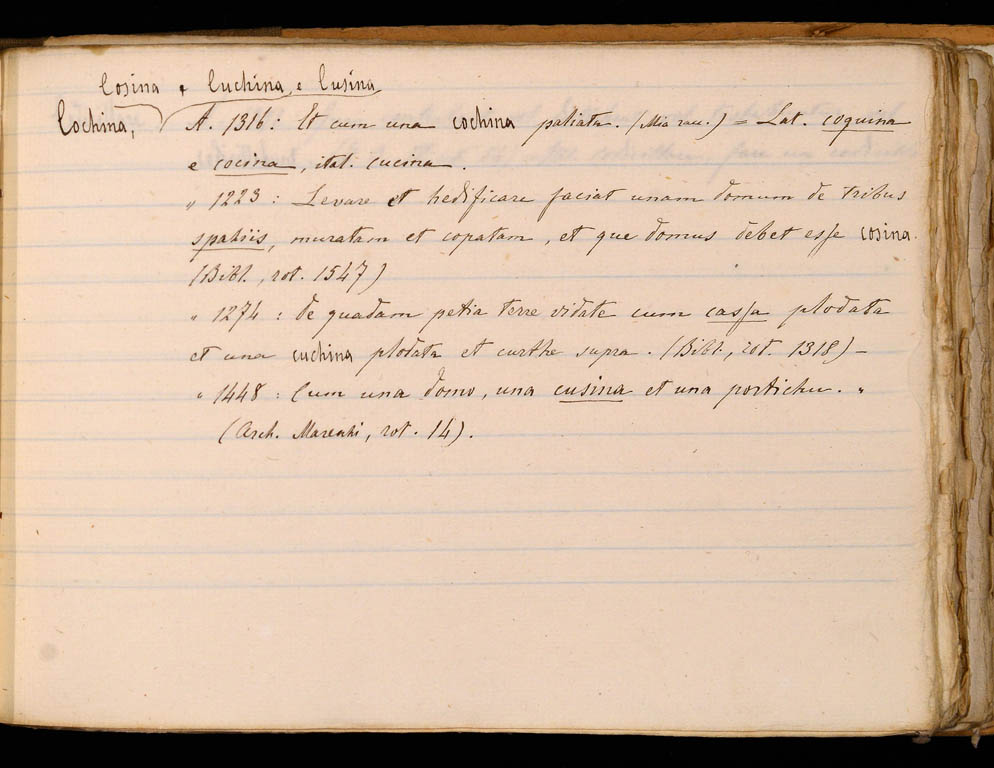 Cosina e Cuchina, e Cusina
Cochina, A. 1316: Et cum una cochina paliata. (Mia rac.) = Lat. coquina
e cocina, ital. cucina.
„ 1223: Levare et hedificare faciat unam domum de tribus
spatiis, muratam et copatam, et que domus debet esse cosina.
(Bibl., rot. 1547)
„ 1274: de quadam petia terre vidate cum cassa plodata
et una cuchina plodata et curthe supra. (Bibl., rot. 1318) –
„ 1448: Cum una domo, una cusina et una portichu. „
(Arch. Mareschi, rot. 14).